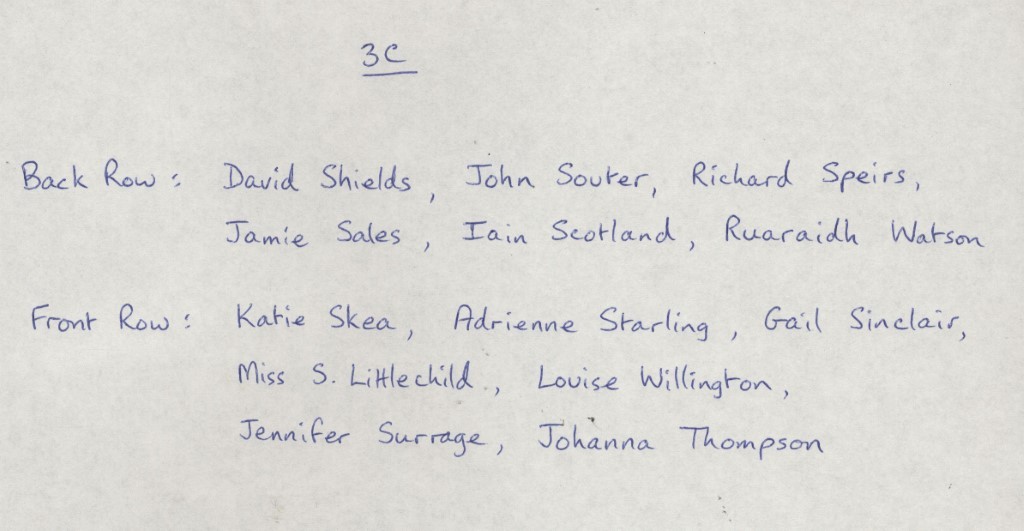 3C
Back Row: David Shields, John Souter, Richard Speirs,
Jamie Sales, Iain Scotland, Ruaraidh Watson
Front Row: Katie Skea, Adrienne Starling, Gail Sinclair,
Miss S. Littlechild., Louise Willington,
Jennifer Surrage, Johanna Thompson